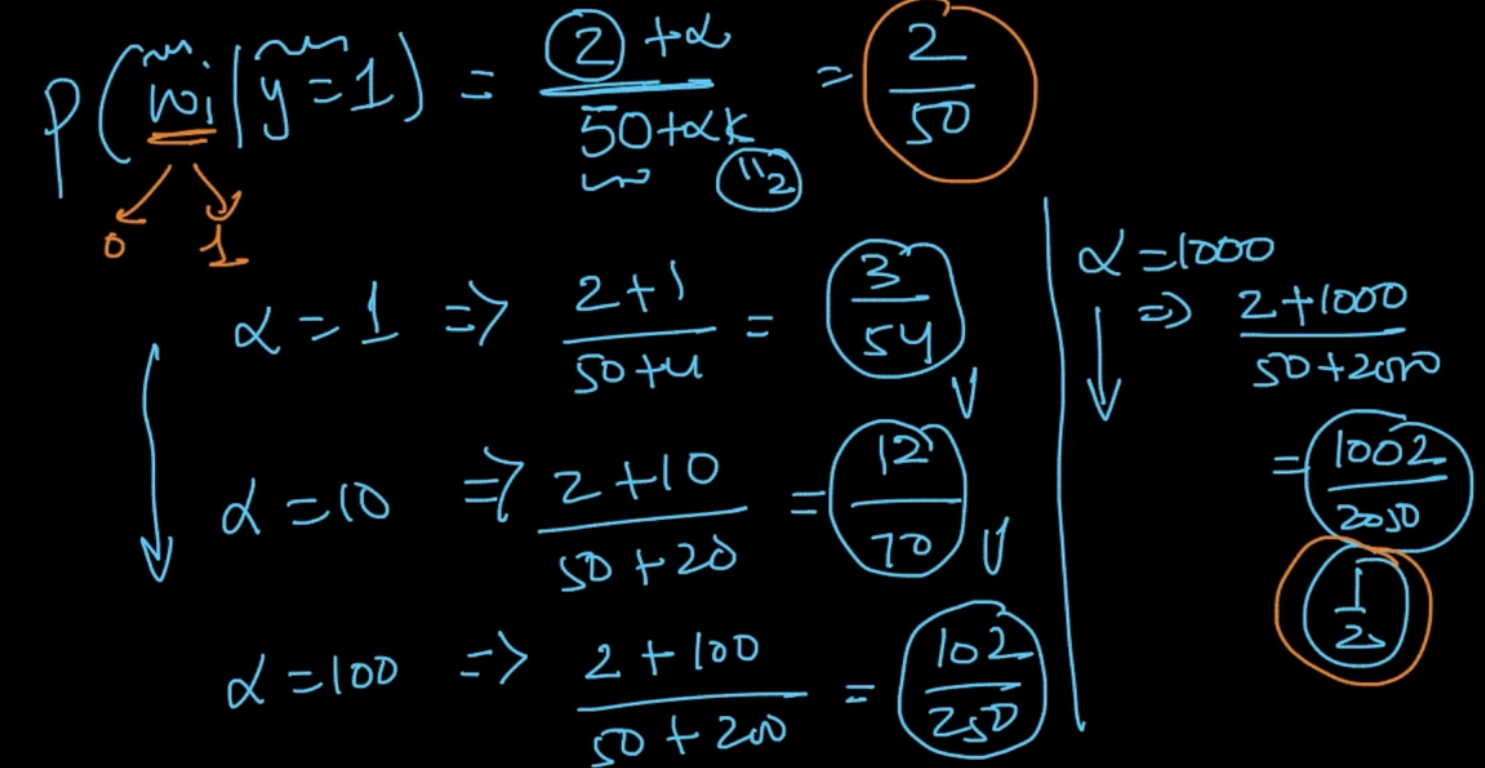 P(wi|y=1) = (2 + α)/(50 + αk) = 2/50
"2
0 1
α = 1 ⇒ (2+1)/(50+4) = 3/54
α = 10 ⇒ (2+10)/(50+20) = 12/70
α = 100 ⇒ (2+100)/(50+200) = 102/250
α = 1000
⇒ (2+1000)/(50+2000)
= 1002/2050
1/2